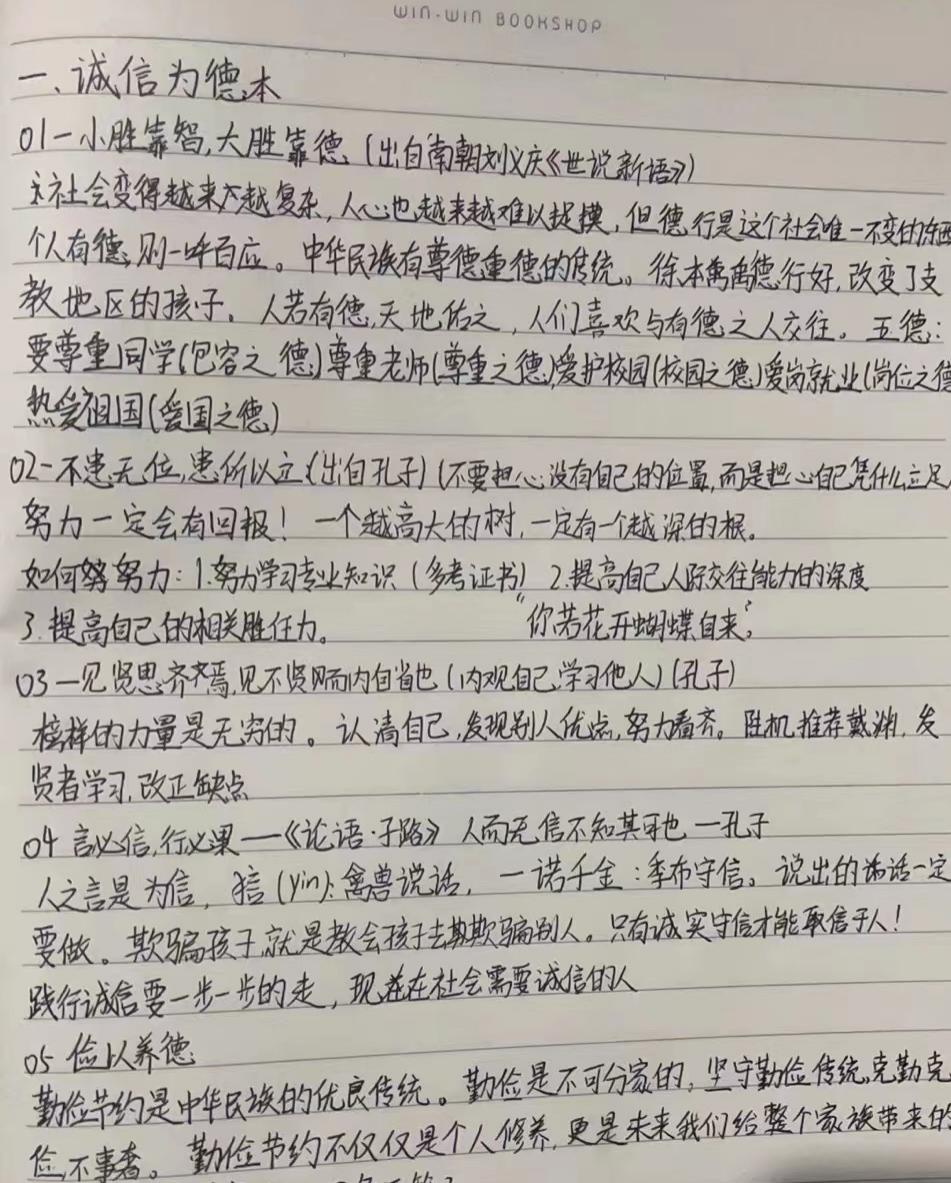 WIN-WIN BOOKSHOP
一、诚信为德本
01一小胜靠智,大胜靠德.(出自南朝刘义庆《世说新语》)
社会变得越来越复杂,人心也越来越难以捉摸,但德行是这个社会唯一不变的东西
个人有德,则一呼百应。中华民族有尊德重德的传统。徐本禹德行好,改变了支
教地区的孩子。人若有德,天地佑之,人们喜欢与有德之人交往。五德:
要尊重同学(包容之德)尊重老师(尊重之德)爱护校园(校园之德)爱岗就业(岗位之德
热爱祖国(爱国之德)
02一不患无位,患所以立(出自孔子)(不要担心没有自己的位置,而是担心自己凭什么立足
努力一定会有回报!一个越高大的树,一定有一个越深的根。
如何努力:1.努力学习专业知识(多考证书)2.提高自己人际交往能力的深度
3.提高自己的相关胜任力。 “你若花开蝴蝶自来”
03一见贤思齐焉,见不贤而内自省也(内观自己,学习他人)(孔子)
榜样的力量是无穷的。认清自己,发现别人优点,努力看齐。陆机推荐戴渊,发
贤者学习,改正缺点
04 言必信,行必果——《论语·子路》人而无信不知其可也一孔子
人之言是为信,狺(yín):禽兽说话,一诺千金:季布守信。说出的话一定
要做。欺骗孩子就是教会孩子去欺骗别人。只有诚实守信才能取信于人!
践行诚信要一步一步的走,现在社会需要诚信的人
05 俭以养德
勤俭节约是中华民族的优良传统。勤俭是不可分家的,坚守勤俭传统,克勤克
俭,不事奢。勤俭节约不仅仅是个人修养,更是未来我们给整个家族带来的